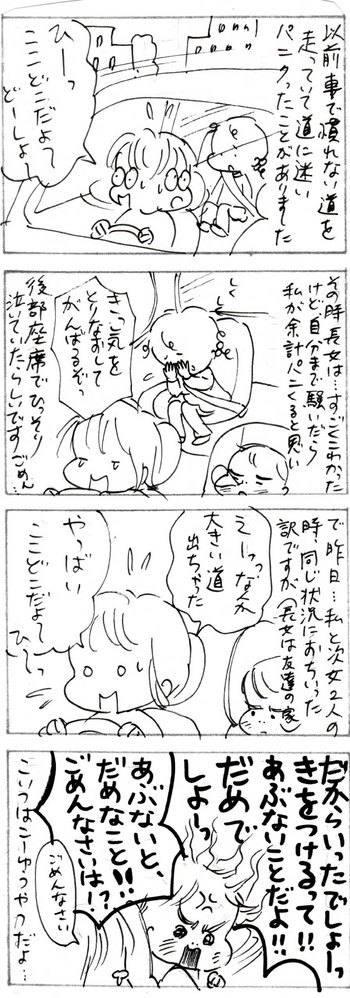 以前車で慣れない道を
走っていて道に迷い
パニクったことがありました
ひーっ
ここどこだよて
どーしよー
その時長女は…すごくこわかった
けど自分まで騒いだら
私が余計パニくると思い
きっ気を
とりなおして
がんばるぞっ
後部座席でひっそり
泣いていたらしいですごめん…
で昨日…私と次女2人の
時、同じ状況におちいった
訳ですが(長女は友達の家)
えーっなんか
大きい道
出ちゃった
やっばい
ここどこだよて
ひーっ
だからいったでしょーっ
きをつけるって!!
あぶないことだよ!!
だめで
しょーっ
あぶないと、
だめなこと!!
ごめんなさいは!?
ごめんなさい
こいつはこーゆうヤツだよ…